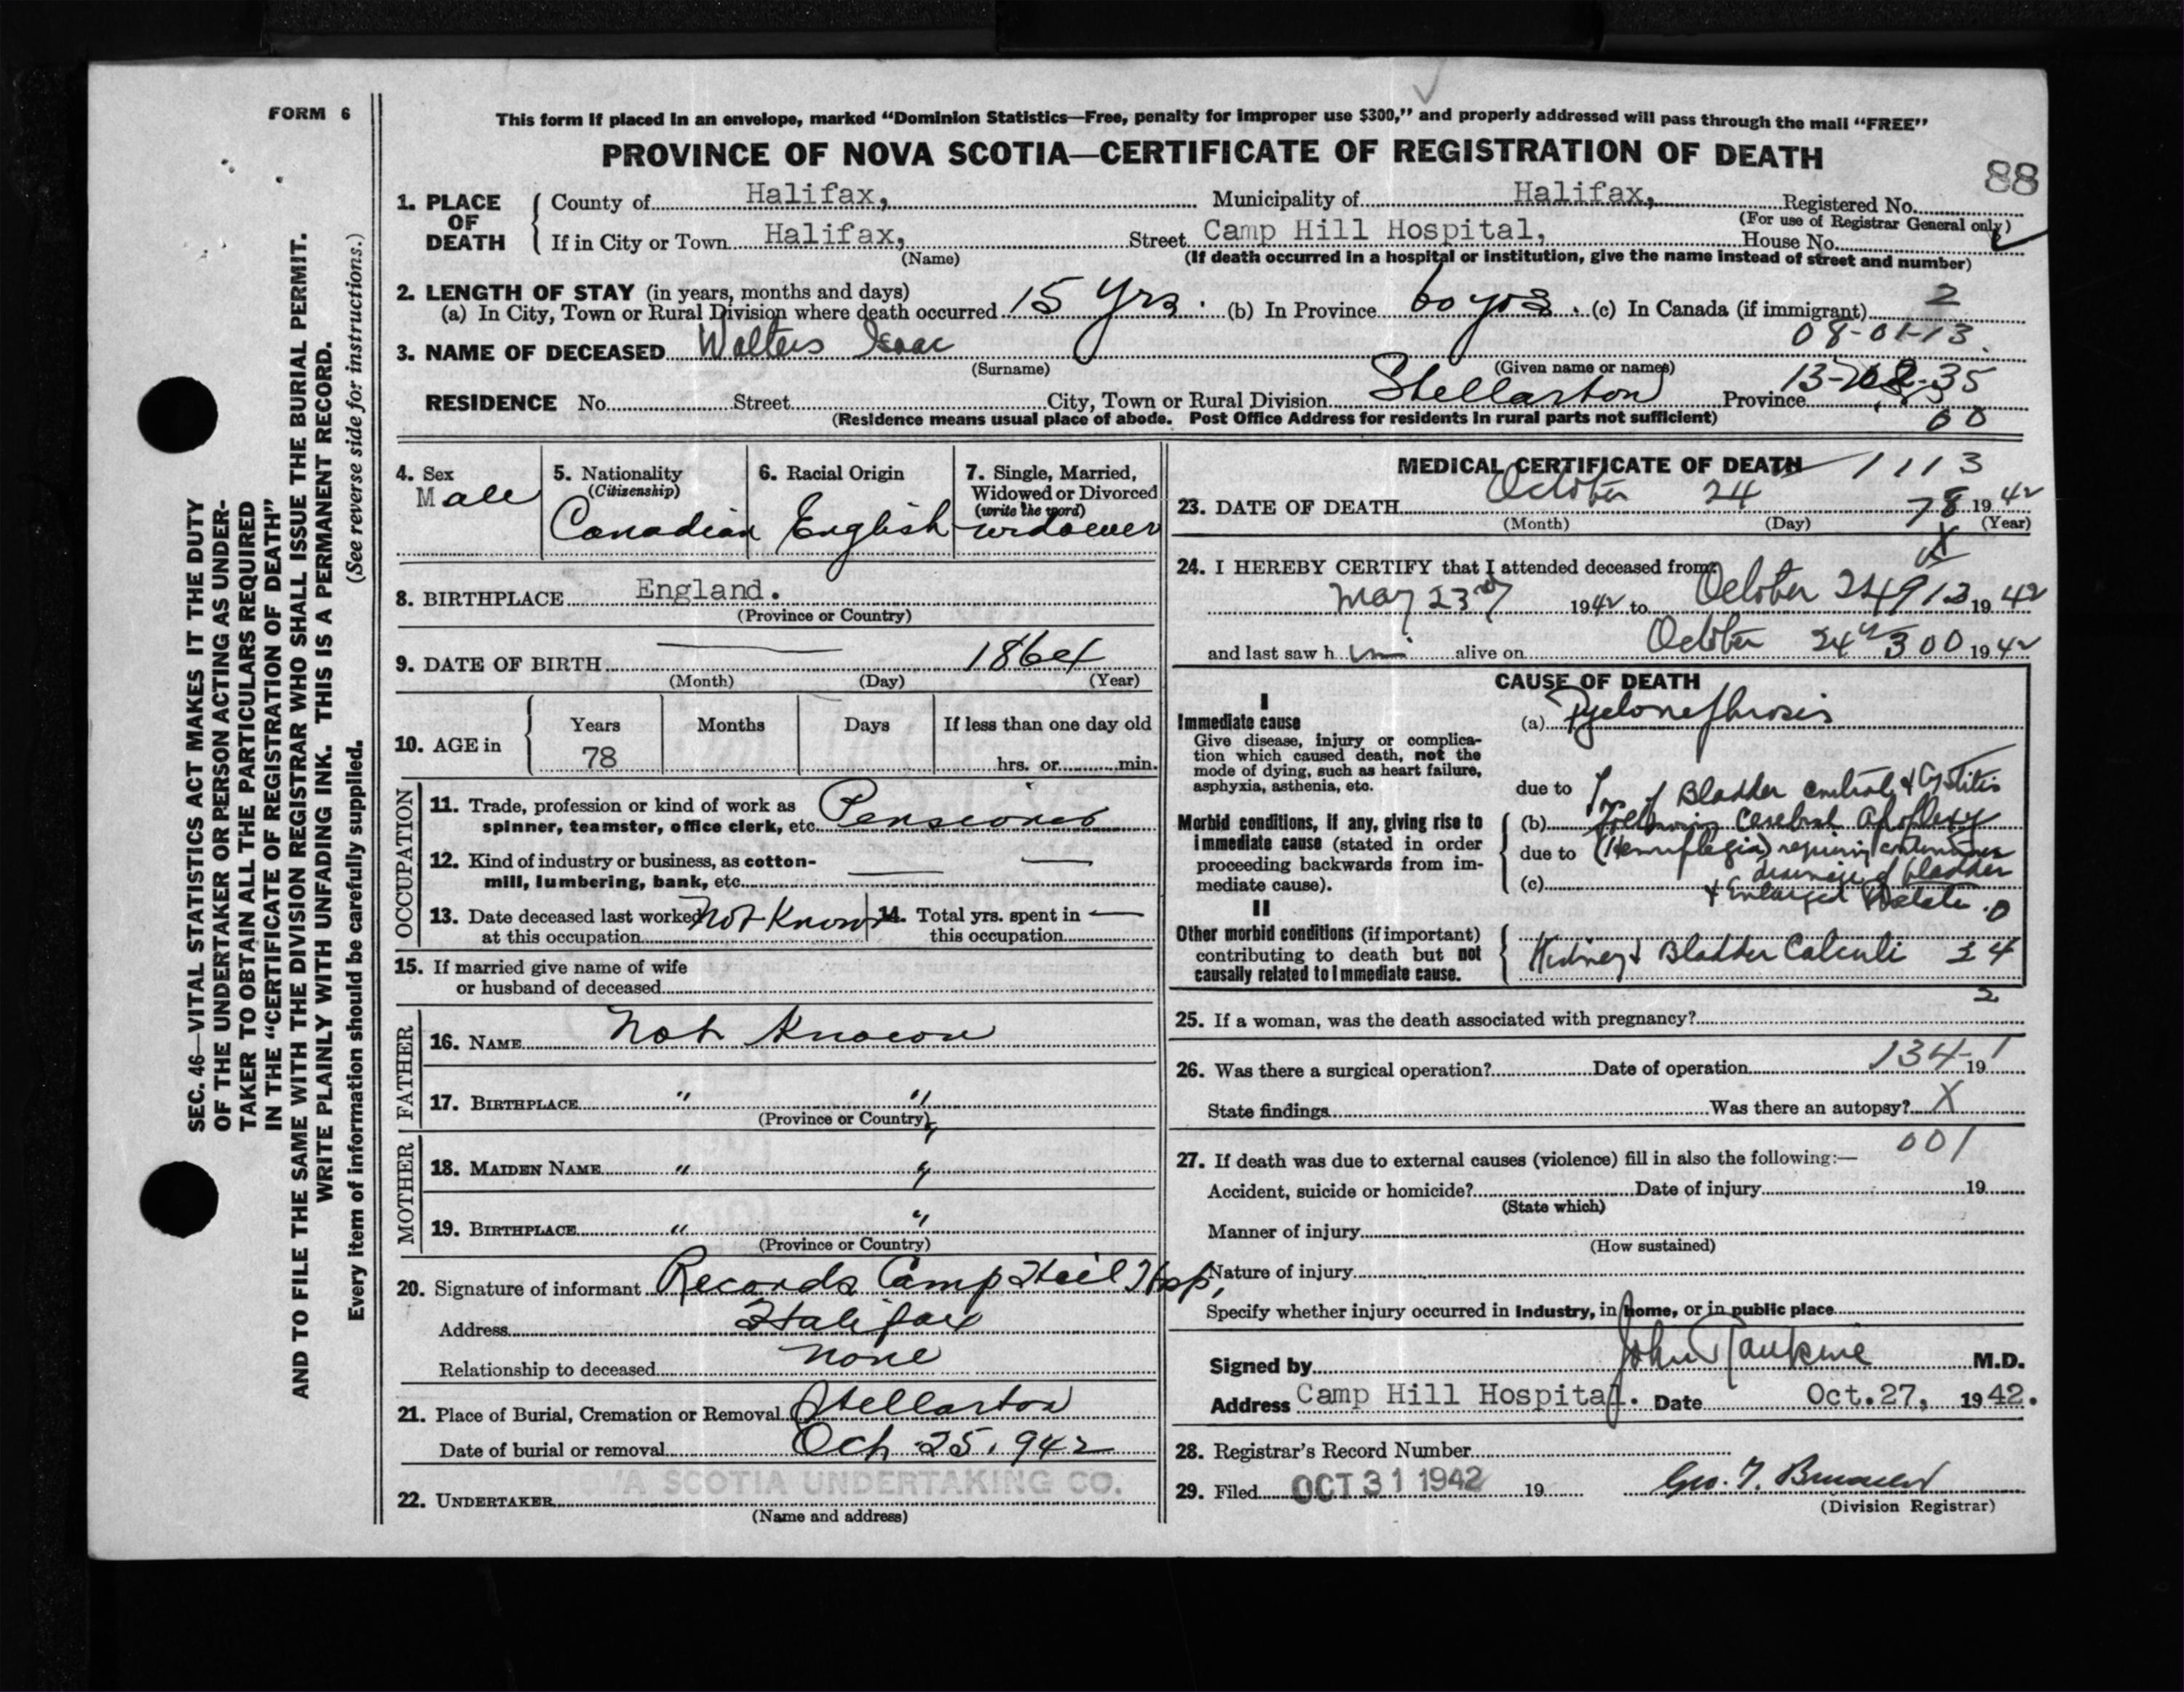 FORM 6
This form if placed in an envelope, marked “Dominion Statistics—Free, penalty for improper use $300,” and properly addressed will pass through the mail “FREE”
PROVINCE OF NOVA SCOTIA—CERTIFICATE OF REGISTRATION OF DEATH
88
1. PLACE OF DEATH
County of Halifax, Municipality of Halifax, Registered No.
(For use of Registrar General only)
If in City or Town Halifax, Street Camp Hill Hospital, House No.
(Name) (If death occurred in a hospital or institution, give the name instead of street and number)
2. LENGTH OF STAY (in years, months and days)
(a) In City, Town or Rural Division where death occurred 15 yrs. (b) In Province 60 yrs. (c) In Canada (if immigrant) 2
08-01-13
3. NAME OF DECEASED Walters Isaac
(Surname) (Given name or names)
RESIDENCE No. Street City, Town or Rural Division Stellarton Province
(Residence means usual place of abode. Post Office Address for residents in rural parts not sufficient)
00
4. Sex
Male
5. Nationality
(Citizenship)
Canadian
6. Racial Origin
English
7. Single, Married,
Widowed or Divorced
(write the word)
widower
8. BIRTHPLACE England.
(Province or Country)
9. DATE OF BIRTH 1864
(Month) (Day) (Year)
10. AGE in
Years Months Days If less than one day old
78 hrs. or min.
OCCUPATION
11. Trade, profession or kind of work as
spinner, teamster, office clerk, etc. Pensioner
12. Kind of industry or business, as cotton-
mill, lumbering, bank, etc. —
13. Date deceased last worked
at this occupation Not Known
14. Total yrs. spent in
this occupation —
15. If married give name of wife
or husband of deceased
FATHER
16. NAME Not Known
17. BIRTHPLACE " "
(Province or Country)
MOTHER
18. MAIDEN NAME " "
19. BIRTHPLACE " "
(Province or Country)
20. Signature of informant Records Camp Hill Hosp,
Address Halifax
Relationship to deceased none
21. Place of Burial, Cremation or Removal Stellarton
Date of burial or removal Oct 25, 942
22. UNDERTAKER VA SCOTIA UNDERTAKING CO.
(Name and address)
MEDICAL CERTIFICATE OF DEATH 1113
23. DATE OF DEATH October 24 1942
78
(Month) (Day) (Year)
X
24. I HEREBY CERTIFY that I attended deceased from:
May 23rd 1942 to October 24 1942
913
and last saw him alive on October 24th 1942
300
CAUSE OF DEATH
I
Immediate cause
Give disease, injury or complica-
tion which caused death, not the
mode of dying, such as heart failure,
asphyxia, asthenia, etc.
(a) Pyelonephrosis
due to Loss of Bladder control & Cystitis
Morbid conditions, if any, giving rise to
immediate cause (stated in order
proceeding backwards from im-
mediate cause).
(b) following Cerebral Apoplexy
due to (Hemiplegia) requiring continuous
drainage of bladder
(c) & Enlarged Prostate
II
Other morbid conditions (if important)
contributing to death but not
causally related to immediate cause.
Kidney & Bladder Calculi 34
2
25. If a woman, was the death associated with pregnancy?
26. Was there a surgical operation? Date of operation 19
134-1
State findings Was there an autopsy? X
001
27. If death was due to external causes (violence) fill in also the following:—
Accident, suicide or homicide? Date of injury 19
(State which)
Manner of injury
(How sustained)
Nature of injury
Specify whether injury occurred in Industry, in home, or in public place
Signed by John M.D.
Address Camp Hill Hospital. Date Oct.27, 1942.
28. Registrar's Record Number
29. Filed OCT 31 1942 19 Geo. F.
(Division Registrar)
SEC. 46—VITAL STATISTICS ACT MAKES IT THE DUTY
OF THE UNDERTAKER OR PERSON ACTING AS UNDER-
TAKER TO OBTAIN ALL THE PARTICULARS REQUIRED
IN THE “CERTIFICATE OF REGISTRATION OF DEATH”
AND TO FILE THE SAME WITH THE DIVISION REGISTRAR WHO SHALL ISSUE THE BURIAL PERMIT.
WRITE PLAINLY WITH UNFADING INK. THIS IS A PERMANENT RECORD.
Every item of information should be carefully supplied. (See reverse side for instructions.)